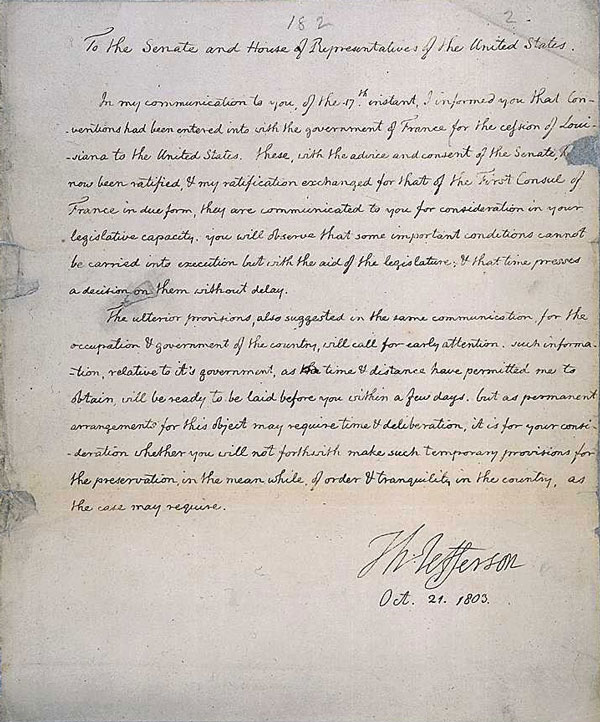 182 2.
To the Senate and House of Representatives of the United States.
In my communication to you, of the 17th instant, I informed you that Con-
-ventions had been entered into with the government of France for the cession of Loui-
-siana to the United States. these, with the advice and consent of the Senate,
now been ratified, & my ratification exchanged for that of the First Consul of
France in due form, they are communicated to you for consideration in your
legislative capacity. you will observe that some important conditions cannot
be carried into execution but with the aid of the legislature; & that time presses
a decision on them without delay.
The ulterior provisions, also suggested in the same communication, for the
occupation & government of the country, will call for early attention. such informa-
-tion, relative to it's government, as time & distance have permitted me to
obtain, will be ready to be laid before you within a few days. but as permanent
arrangements for this object may require time & deliberation, it is for your consi-
-deration whether you will not forthwith make such temporary provisions for
the preservation, in the mean while, of order & tranquility in the country, as
the case may require.
Th: Jefferson
Oct. 21. 1803.